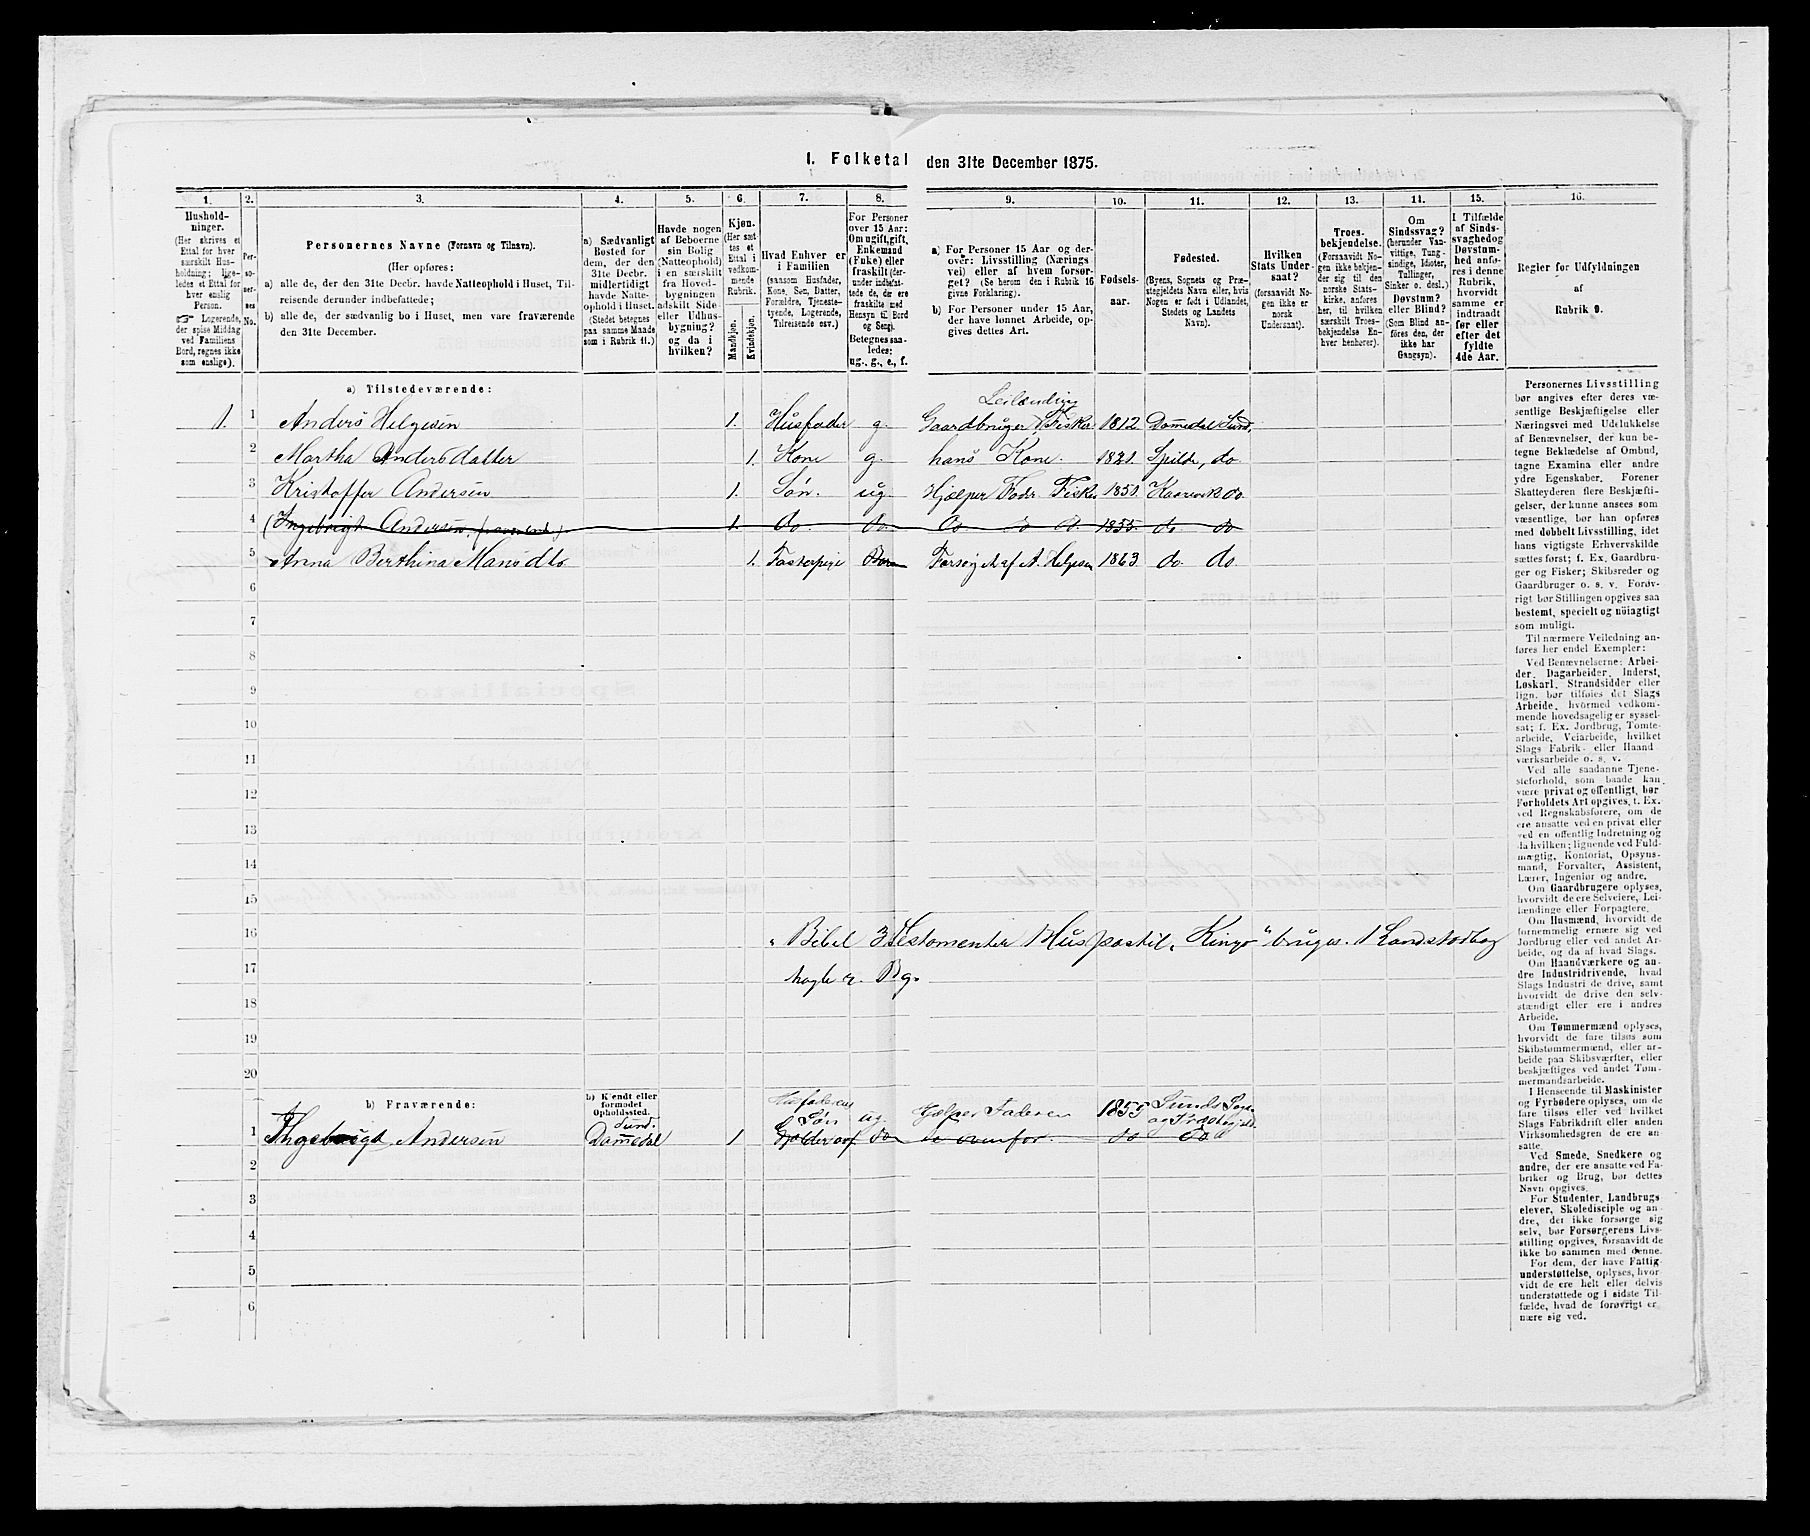 I. Folketal den 31te December 1875.
1. 2. 3. 4. 5. 6. 7. 8. 9. 10. 11. 12. 13. 14. 15. 16.
Hushold-
ninger.
(Her skrives et
Ettal for hver
særskilt Hus-
holdning; lige-
ledes et Ettal for
hver enslig
Person.
☞ Logerende,
der spise Middag
ved Familiens
Bord, regnes ikke
som enslige).
Per-
so-
ner-
nes
No.
Personernes Navne (Fornavn og Tilnavn).
(Her opføres:
a) alle de, der den 31te Decbr. havde Natteophold i Huset, Til-
reisende derunder indbefattede;
b) alle de, der sædvanlig bo i Huset, men vare fraværende
den 31te December.
a) Sædvanligt
Bosted for
dem, der den
31te Decbr.
midlertidigt
havde Natte-
ophold i Huset.
(Stedet betegnes
paa samme Maade
som i Rubrik 11.)
Havde nogen
af Beboerne
sin Bolig
(Natteophold)
i en særskilt
fra Hoved-
bygningen
adskilt Side-
eller Udhus-
bygning?
og da i
hvilken?
Kjøn.
(Her sæt-
tes et
Ettal i
vedkom-
mende
Rubrik.
Mandkjøn.
Kvindekjøn.
Hvad Enhver er
i Familien
(saasom Husfader,
Kone, Søn, Datter,
Forældre, Tjeneste-
tyende, Logerende,
Tilreisende osv.)
For Personer
over 15 Aar:
Om ugift, gift,
Enkemand
(Enke) eller
fraskilt (der-
under indbefat-
tede de, der ere
fraskilte med
Hensyn til Bord
og Seng).
Betegnes saa-
ledes:
ug., g., e., f.
a) For Personer 15 Aar og der-
over: Livsstilling (Nærings-
vei) eller af hvem forsør-
get? (Se herom den i Rubrik 16
givne Forklaring).
b) For Personer under 15 Aar,
der have lønnet Arbeide, op-
gives dettes Art.
Fødsels-
aar.
Fødested.
(Byens, Sognets og Præ-
stegjeldets Navn eller, hvis
Nogen er født i Udlandet,
Stedets og Landets
Navn).
Hvilken
Stats Under-
saat?
(forsaavidt No-
gen ikke er
norsk
Undersaat).
Troes-
bekjendelse.
(Forsaavidt No-
gen ikke bekjen-
der sig til den
norske Stats-
kirke, anføres
her, til hvilken
særskilt Troes-
bekjendelse En-
hver henhører).
Om
Sindssvag?
(herunder Van-
vittige, Tung-
sindige, Idioter,
Tullinger,
Sinker o. desl.)
Døvstum?
eller Blind?
(Som Blind an-
føres den, der
ikke har
Gangsyn).
I Tilfælde
af Sinds-
svaghed og
Døvstum-
hed anfø-
res i denne
Rubrik,
hvorvidt
samme er
indtraadt
før eller
efter det
fyldte
4de Aar.
Regler for Udfyldningen
af
Rubrik 9.
a) Tilstedeværende:
Leilænding
1. 1 Anders Helgesen 1. Husfader g. Gaardbruger, Fisker 1812 Dommedal Sund.
2 Martha Andersdatter 1. Kone g. hans Kone. 1821. Spilde, do
3 Kristoffer Andersen 1. Søn. ug. Hjælper Fader Fisker 1850 do
4 (Ingebrigt Andersen. 1. do do 1855. do do
5 Anna Berthina Monsdtr 1. Fosterpige Forsørget af A. Helgesen 1863 do. do.
6
7
8
9
10
11
12
13
14
15
16 1 Bibel 3 Testamenter 1 Huspostil, "Kingo" bruges. 1 Landstad bog
17
18
19
20
b) Fraværende:
b) Kjendt eller
formodet
Opholdssted.
Sund.
Husfaderens
1 Ingebrigt Andersen Dommedal 1 Søn ug Hjælper Faderen 1855 Sunds Sogn
og Præstegjeld
2
3
4
5
6
Personernes Livsstilling
bør angives efter deres væ-
sentlige Beskjæftigelse eller
Næringsvei med Udelukkelse
af Benævnelser, der kun be-
tegne Beklædelse af Ombud,
tagne Examina eller andre
ydre Egenskaber. Forener
Skatteyderen flere Beskjæfti-
gelser, der kunne ansees som
væsentlige, bør han opføres
med dobbelt Livsstilling, idet
hans vigtigste Erhvervskilde
sættes først; f. Ex. Gaardbru-
ger og Fisker; Skibsreder og
Gaardbruger o. s. v. Forøv-
rigt bør Stillingen opgives saa
bestemt, specielt og nøiagtigt
som muligt.
Til nærmere Veiledning an-
føres her endel Exempler:
Ved Benævnelserne: Arbei-
der, Dagarbeider, Inderst,
Løskarl, Strandsidder eller
lign. bør tilføies det Slags
Arbeide, hvormed vedkom-
mende hovedsagelig er syssel-
sat; f. Ex. Jordbrug, Tomte-
arbeide, Veiarbeide, hvilket
Slags Fabrik- eller Haand-
værksarbeide o. s. v.
Ved alle saadanne Tjene-
steforhold, som baade kan
være privat og offentligt, bør
Forholdets Art opgives, t. Ex.
ved Regnskabsførere, om de
ere ansatte ved en privat eller
ved en offentlig Indretning og
da hvilken; lignende ved Fuld-
mægtig, Kontorist, Opsyns-
mand, Forvalter, Assistent,
Lærer, Ingeniør og andre.
Om Gaardbrugere oplyses,
hvorvidt de ere Selveiere, Lei-
lændinge eller Forpagtere.
Om Husmænd, hvorvidt de
fornemmelig ernære sig ved
Jordbrug eller ved andet Ar-
beide, og da af hvad Slags.
Om Haandværkere og an-
dre Industridrivende, hvad
Slags Industri de drive, samt
hvorvidt de drive den selv-
stændigt eller ere i andres
Arbeide.
Om Tømmermænd oplyses,
hvorvidt de fare tilsøs som
Skibstømmermænd, eller ar-
beide paa Skibsværfter, eller
beskjæftiges ved andet Tøm-
mermandsarbeide.
I Henseende til Maskinister
og Fyrbødere oplyses, om de
fare tilsøs eller ved hvilket
Slags Fabrikdrift eller anden
Virksomhedsgren de ere an-
satte.
Ved Smede, Snedkere og
andre, der ere ansatte ved Fa-
briker og Brug, bør dettes
Navn opgives.
For Studenter, Landbrugs-
elever, Skoledisciple og an-
dre, der ikke forsørge sig
selv, bør Forsørgerens Livs-
stilling opgives, forsaavidt de
ikke bo sammen med denne.
For dem, der have Fattig-
understøttelse, oplyses, hvor-
vidt de ere helt eller delvis
understøttede og i sidste Til-
fælde, hvad de forøvrigt er-
nære sig ved.